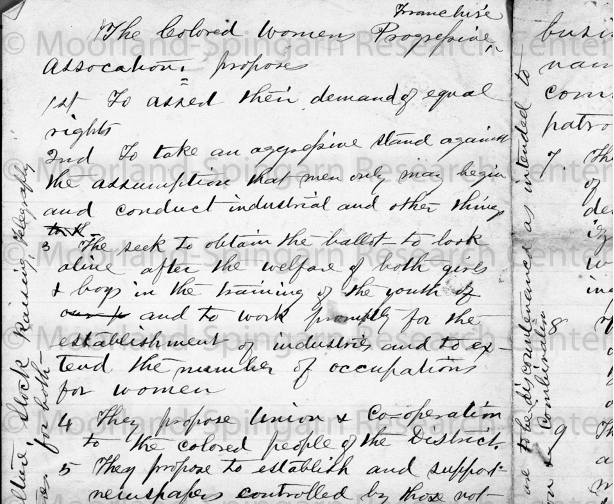 Franchise
The Colored Women Progressive
Assocation. propose
1st To assed their demand of equal
rights
2nd To take an aggressive stand against
the assumption that men only may begin
and conduct industrial and other things
3 The seek to obtain the ballot to look
alive after the welfare of both girls
& boys in the training of the youth of
and to work promptly for the
establishment of industries and to ex-
tend the number of occupations
for women
4 They propose Union & Cooperation
to the colored people of the District.
5 They propose to establish and support
newspapers controlled by those not
Stock Raising, Telegraphy
for both
to be discountenanced as intended to
& Combination
busi
nam
com
patro
7. Th
of
de
8
9 Th
© Moorland-Spingarn Research Center